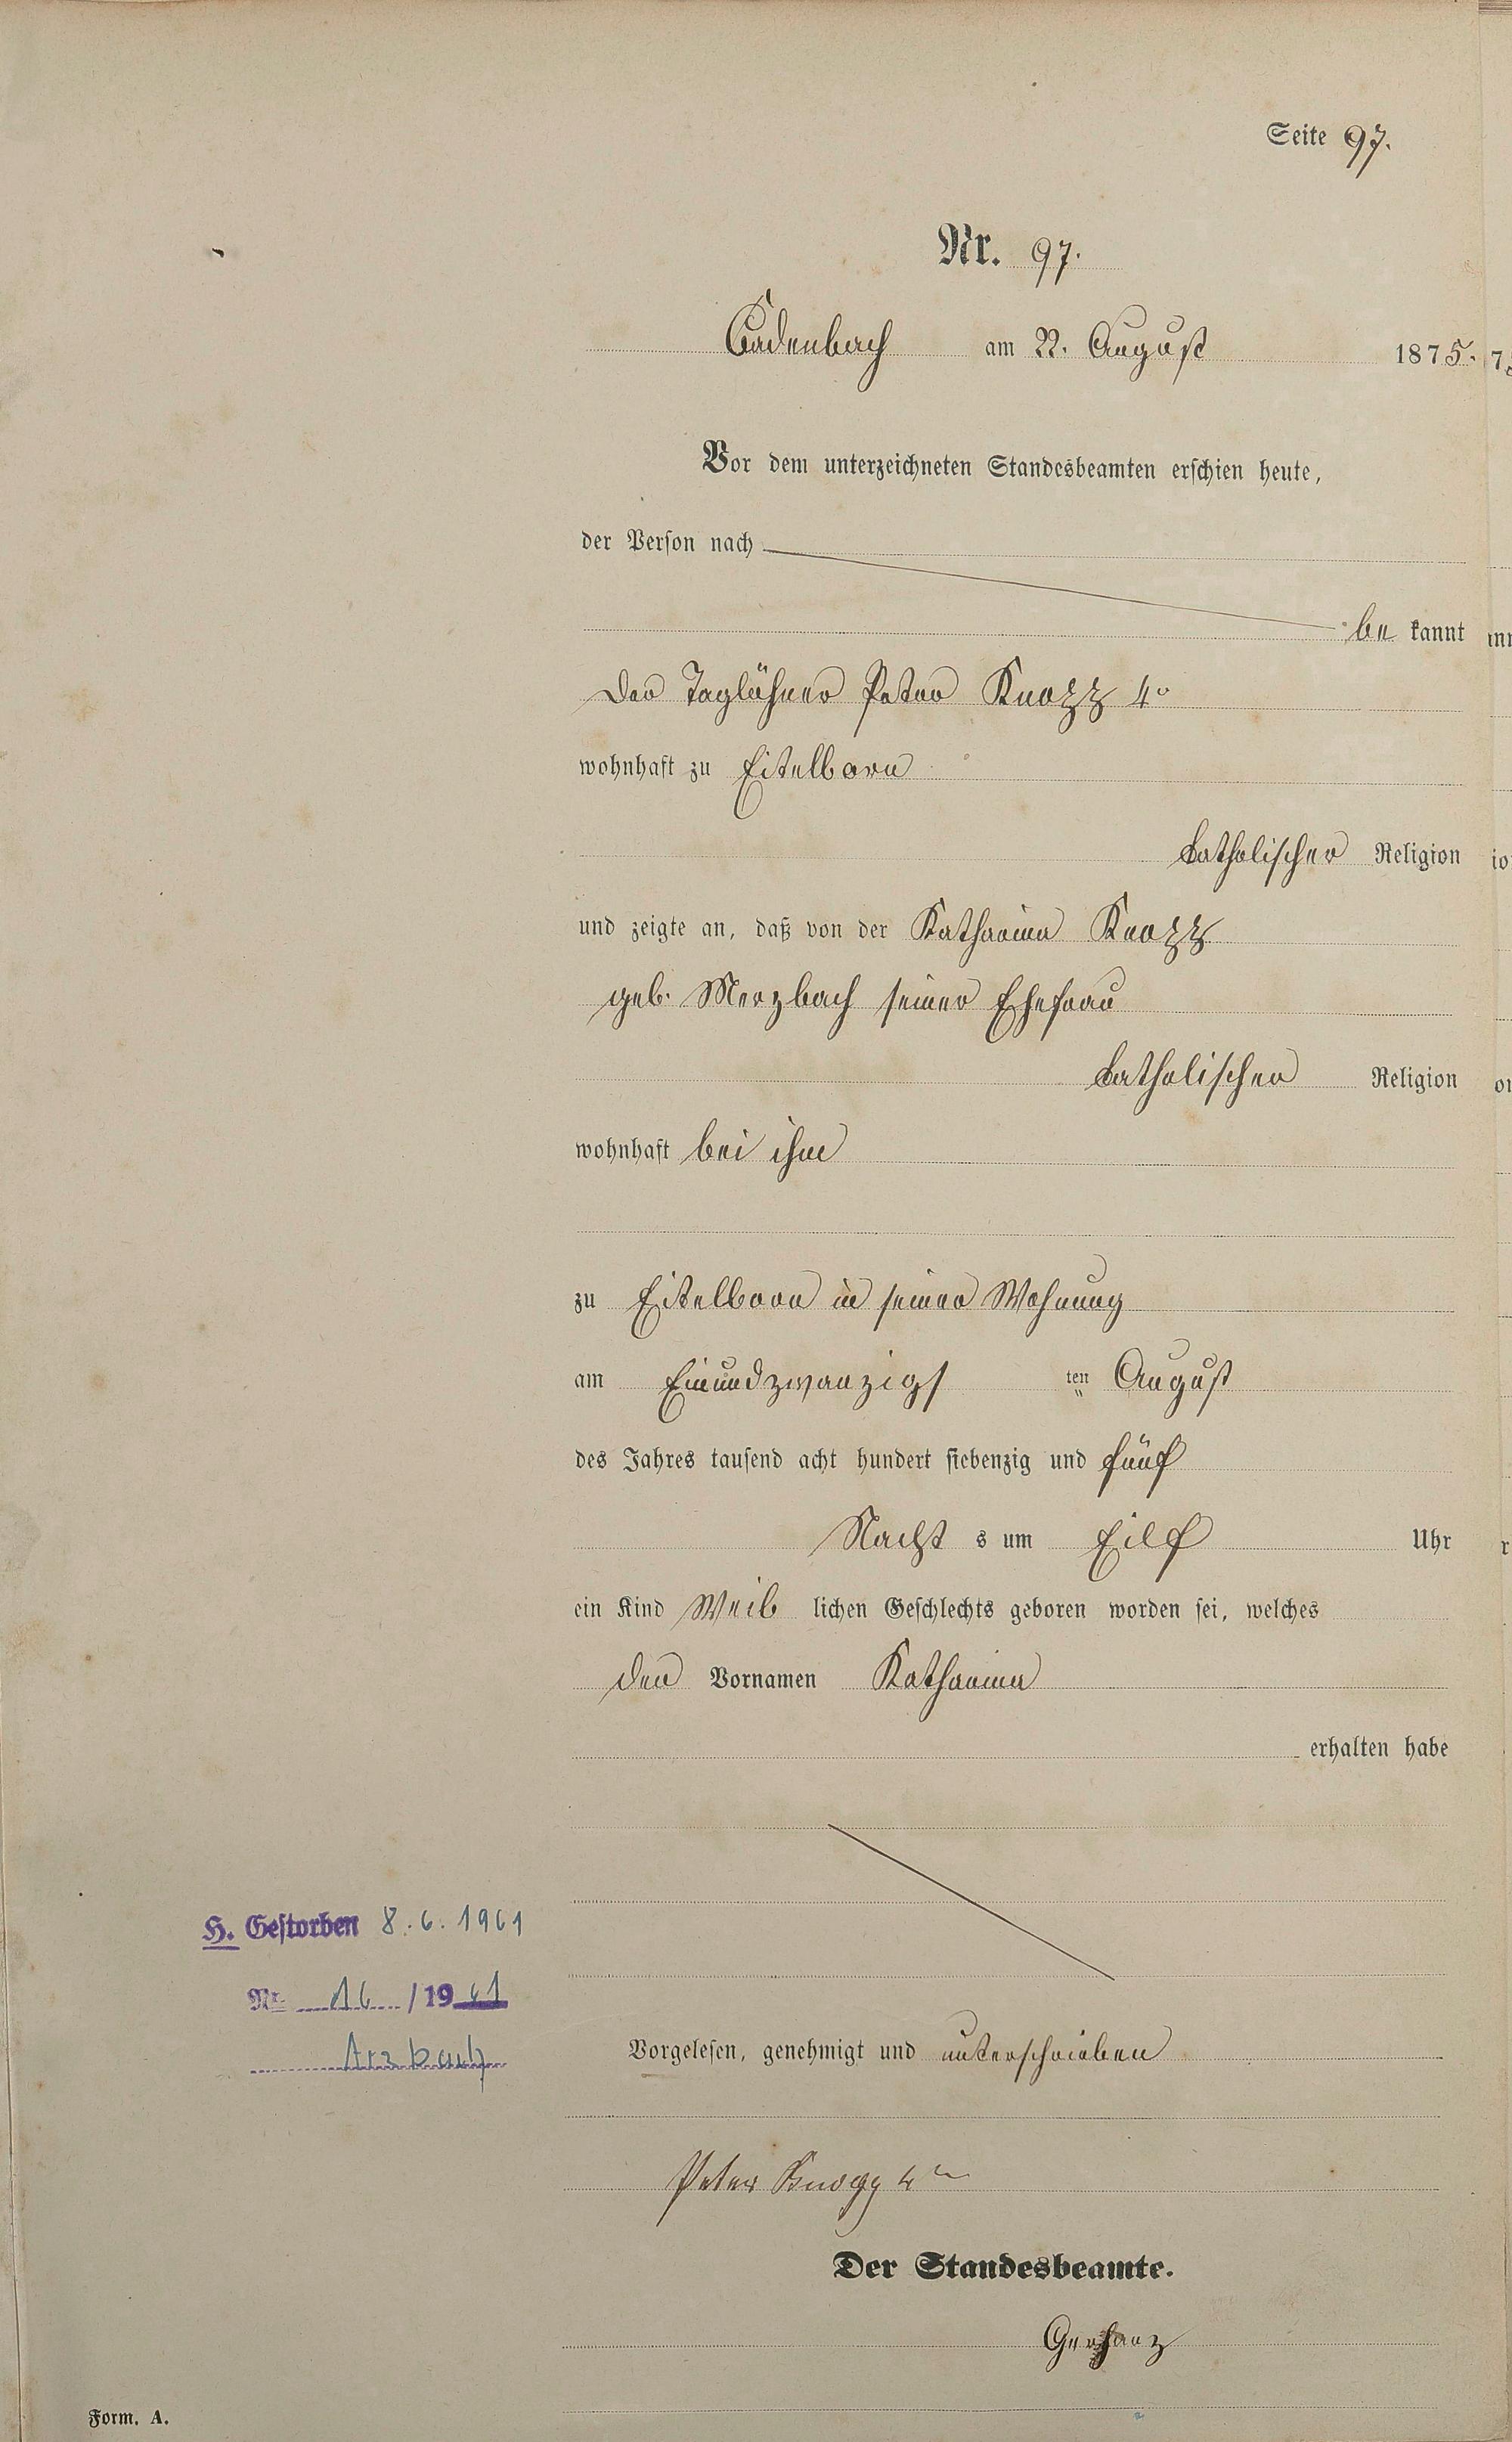 Seite 97.
Nr. 97.
Cadenbach am 22. August 1875.
Vor dem unterzeichneten Standesbeamten erschien heute,
der Person nach
be kannt
der Taglöhner Peter Knopp 4r
wohnhaft zu Eitelborn
katholischer Religion
und zeigte an, daß von der Katharina Knopp
geb. Merzbach seiner Ehefrau
katholischer Religion
wohnhaft bei ihm
zu Eitelborn in seiner Wohnung
am Einundzwanzigs ten August
des Jahres tausend acht hundert siebenzig und fünf
Nacht s um Eilf Uhr
ein Kind Weib lichen Geschlechts geboren worden sei, welches
den Vornamen Katharina
erhalten habe
H. Gestorben 8.6.1961
Nr. 16 / 1961
Arzbach
Vorgelesen, genehmigt und unterschrieben
Peter Knopp 4r
Der Standesbeamte.
Gerhanz
Form. A.